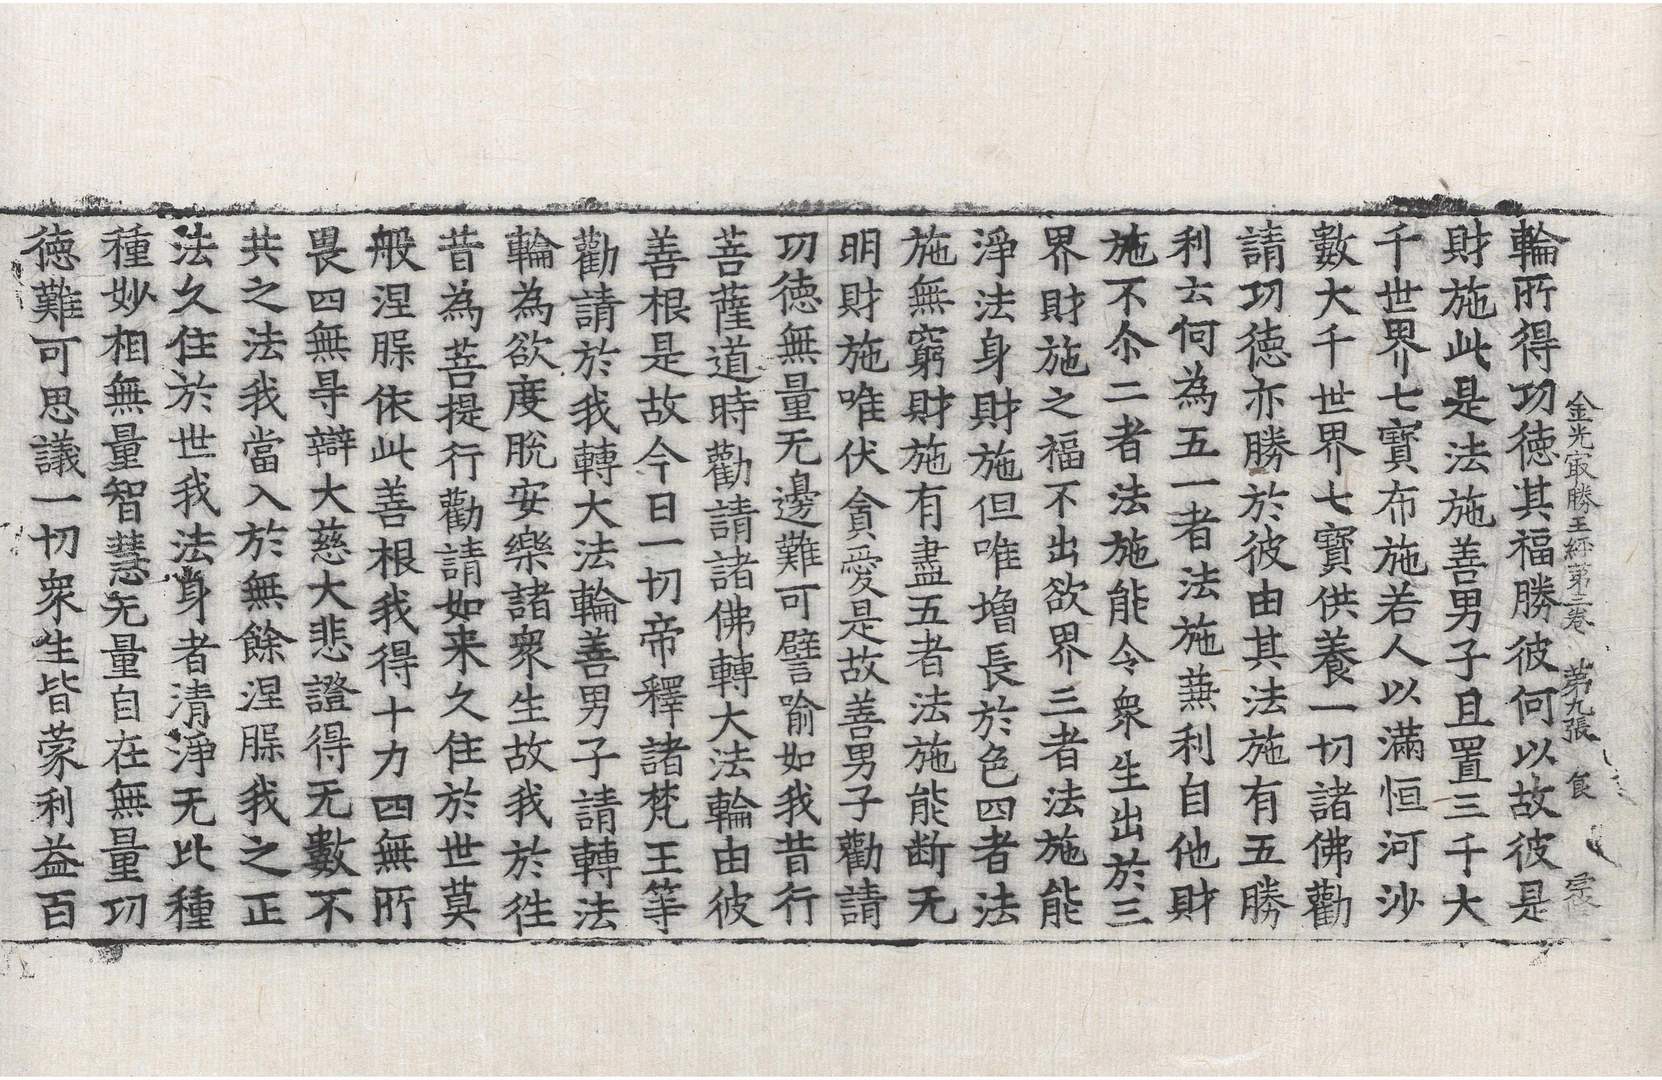 金光㝡勝王經第三卷 第九張 食
輪所得功德其福勝彼何以故彼是
財施此是法施善男子且置三千大
千世界七寶布施若人以滿恒河沙
數大千世界七寶供養一切諸佛勸
請功德亦勝於彼由其法施有五勝
利云何為五一者法施兼利自他財
施不尒二者法施能令衆生出於三
界財施之福不出欲界三者法施能
淨法身財施但唯增長於色四者法
施無窮財施有盡五者法施能断无
明財施唯伏貪愛是故善男子勸請
功德無量无邊難可譬喻如我昔行
菩薩道時勸請諸佛轉大法輪由彼
善根是故今日一切帝釋諸梵王等
勸請於我轉大法輪善男子請轉法
輪為欲度脫安樂諸衆生故我於徃
昔為菩提行勸請如来久住於世莫
般涅槃依此善根我得十力四無所
畏四無㝵辯大慈大悲證得无數不
共之法我當入於無餘涅槃我之正
法久住於世我法身者清淨无比種
種妙相無量智慧无量自在無量功
德難可思議一切衆生皆蒙利益百